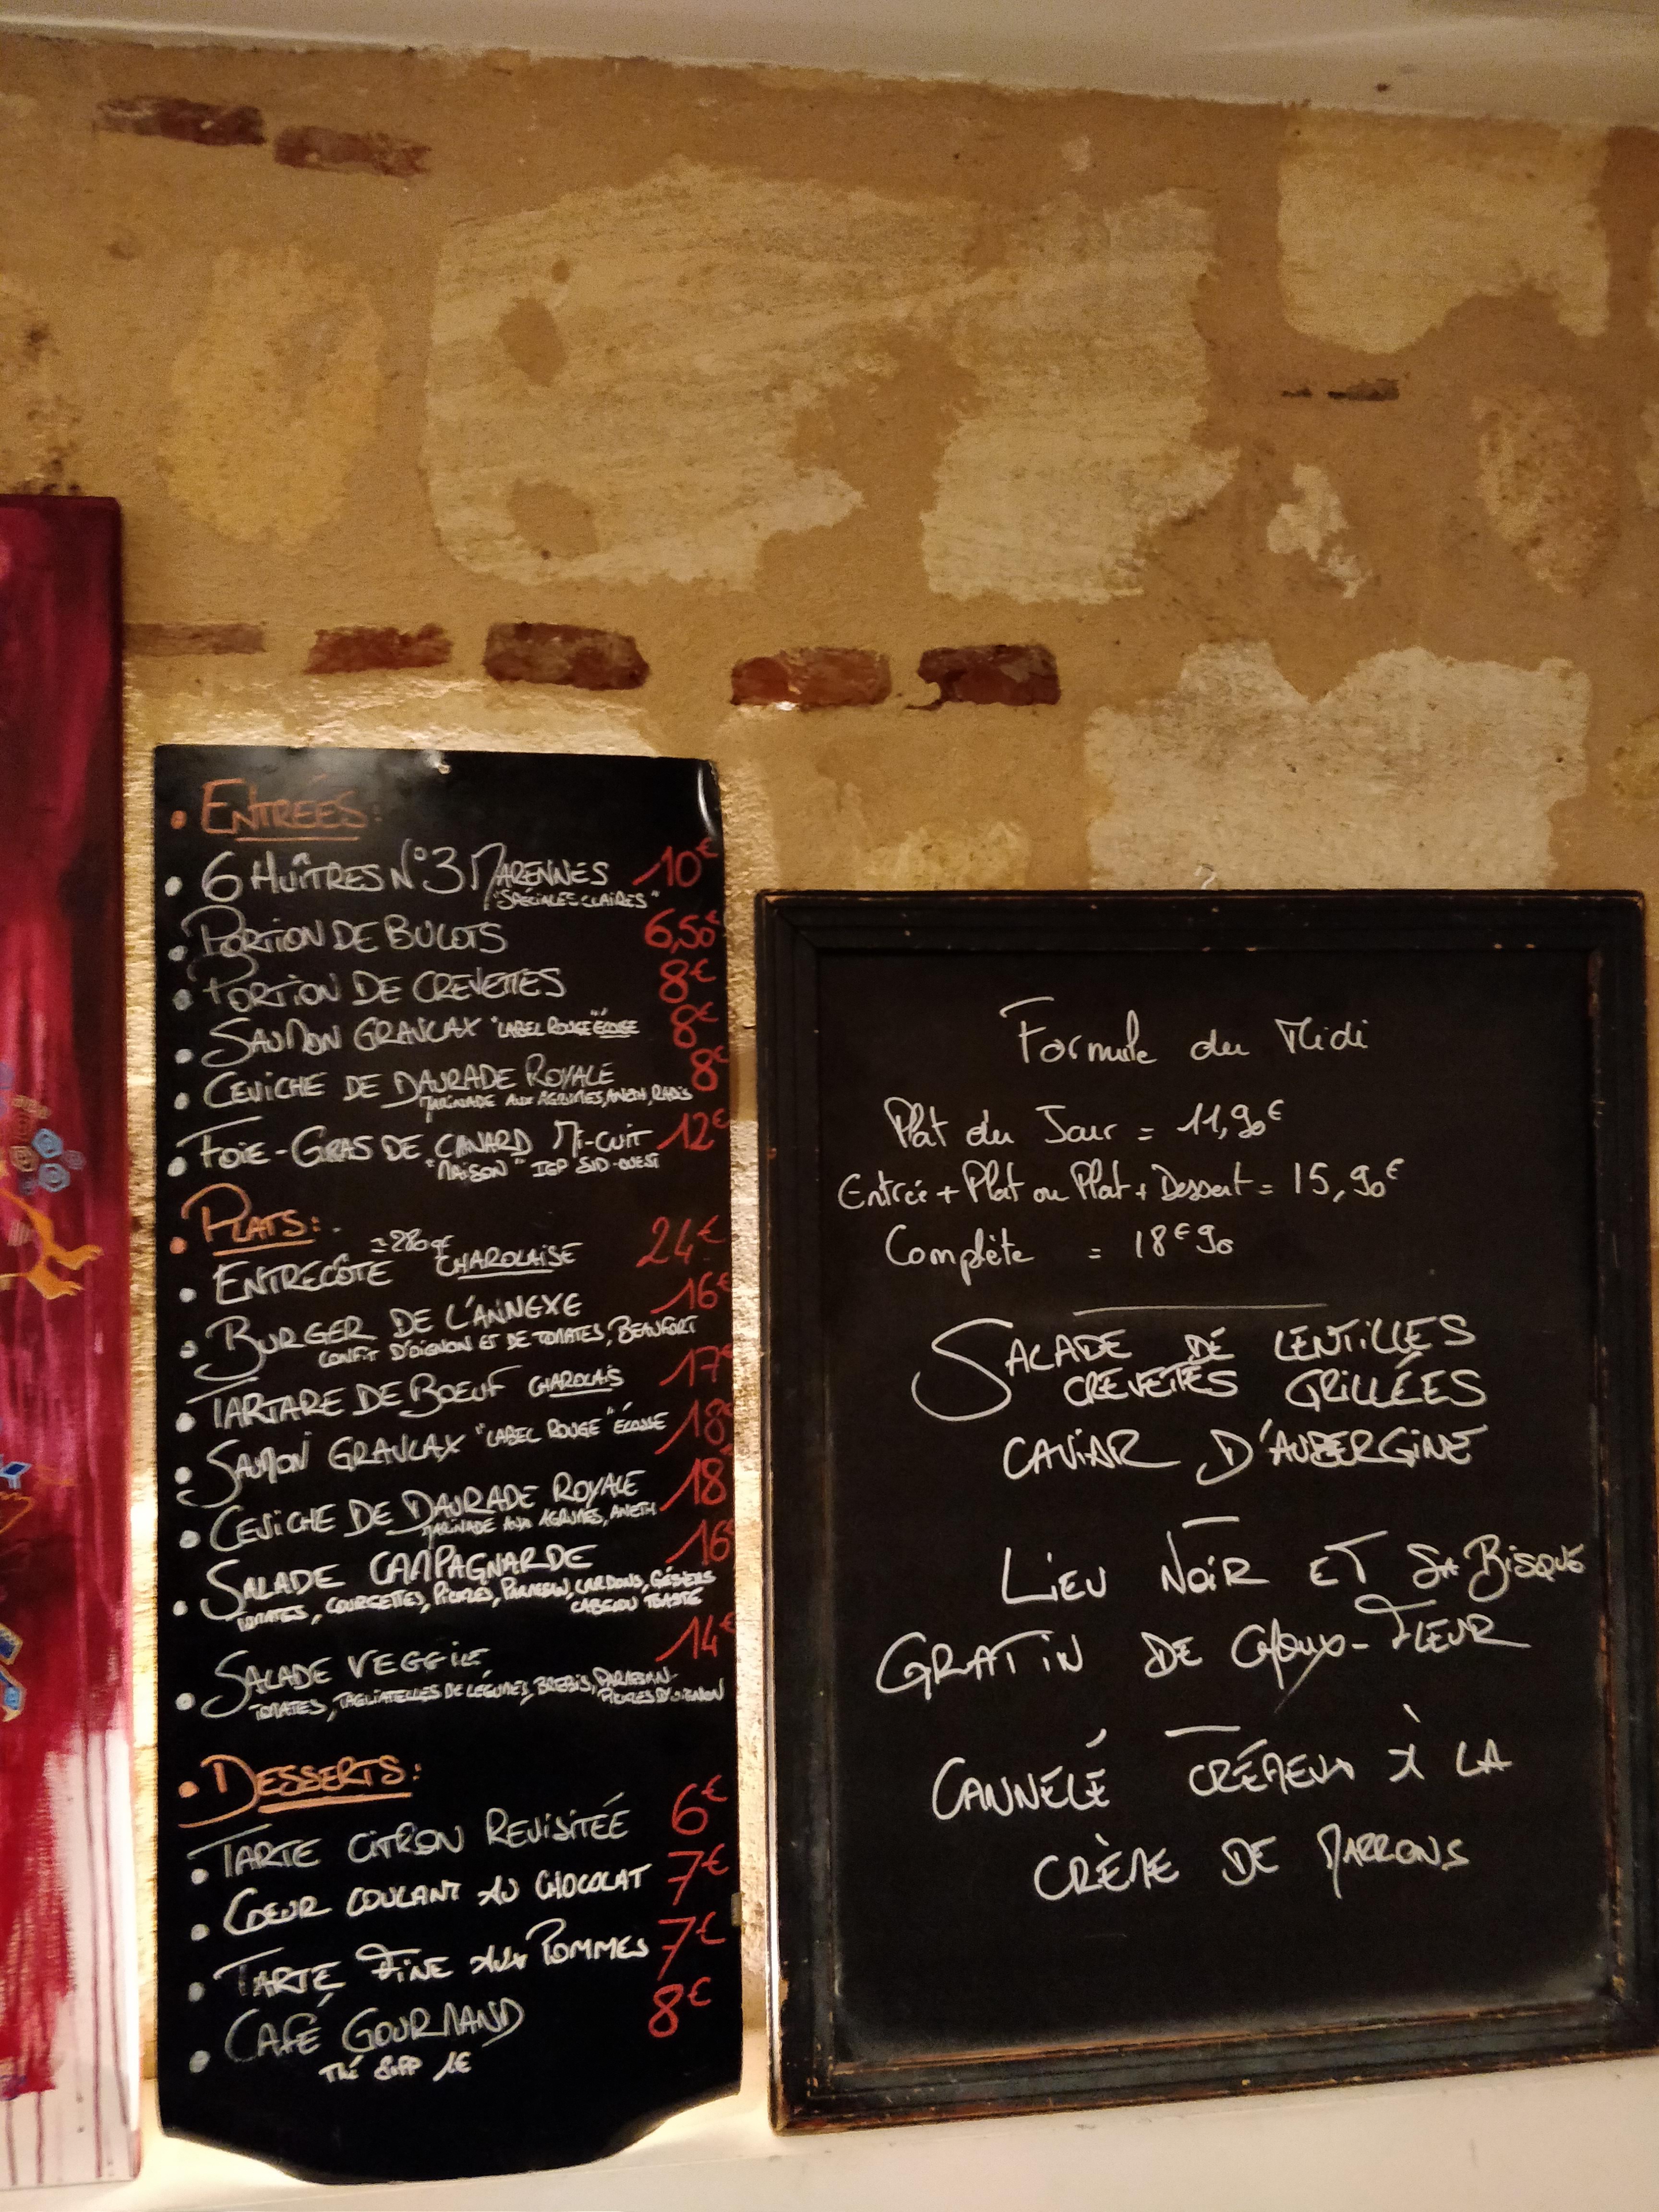 • ENTRÉES:
• 6 HUÎTRES N°3 MARENNES 10€
"SPÉCIALES CLAIRES"
• PORTION DE BULOTS 6,50€
• PORTION DE CREVETTES 8€
• SAUMON GRAVLAX "LABEL ROUGE" ÉCOSSE 8€
• CEVICHE DE DAURADE ROYALE 8€
MARINADE AUX AGRUMES, ANETH, RADIS
• FOIE-GRAS DE CANARD MI-CUIT 12€
"MAISON" IGP SUD-OUEST
• PLATS:
• ENTRECÔTE ≈280gr CHAROLAISE 24€
• BURGER DE L'ANNEXE 16€
CONFIT D'OIGNON ET DE TOMATES, BEAUFORT
• TARTARE DE BOEUF CHAROLAIS 17€
• SAUMON GRAVLAX "LABEL ROUGE" ÉCOSSE 18€
• CEVICHE DE DAURADE ROYALE 18€
MARINADE AUX AGRUMES, ANETH
• SALADE CAMPAGNARDE 16€
TOMATES, COURGETTES, PICKLES, PARMESAN, LARDONS, GÉSIERS
CABECOU TOASTÉ
• SALADE VEGGIE 14€
TOMATES, TAGLIATELLES DE LÉGUMES, BREBIS, PARMESAN
PICKLES D'OIGNON
• DESSERTS:
• TARTE CITRON REVISITÉE 6€
• COEUR COULANT AU CHOCOLAT 7€
• TARTE FINE AUX POMMES 7€
• CAFÉ GOURMAND 8€
Thé supp 1€
Formule du Midi
Plat du Jour = 11,90€
Entrée + Plat ou Plat + Dessert = 15,90€
Complète = 18€90
SALADE DE LENTILLES
CREVETTES GRILLÉES
CAVIAR D'AUBERGINE
LIEU NOIR ET SA BISQUE
GRATIN DE CHOUX-FLEUR
CANNELÉ CRÉMEUX À LA
CRÈME DE MARRONS